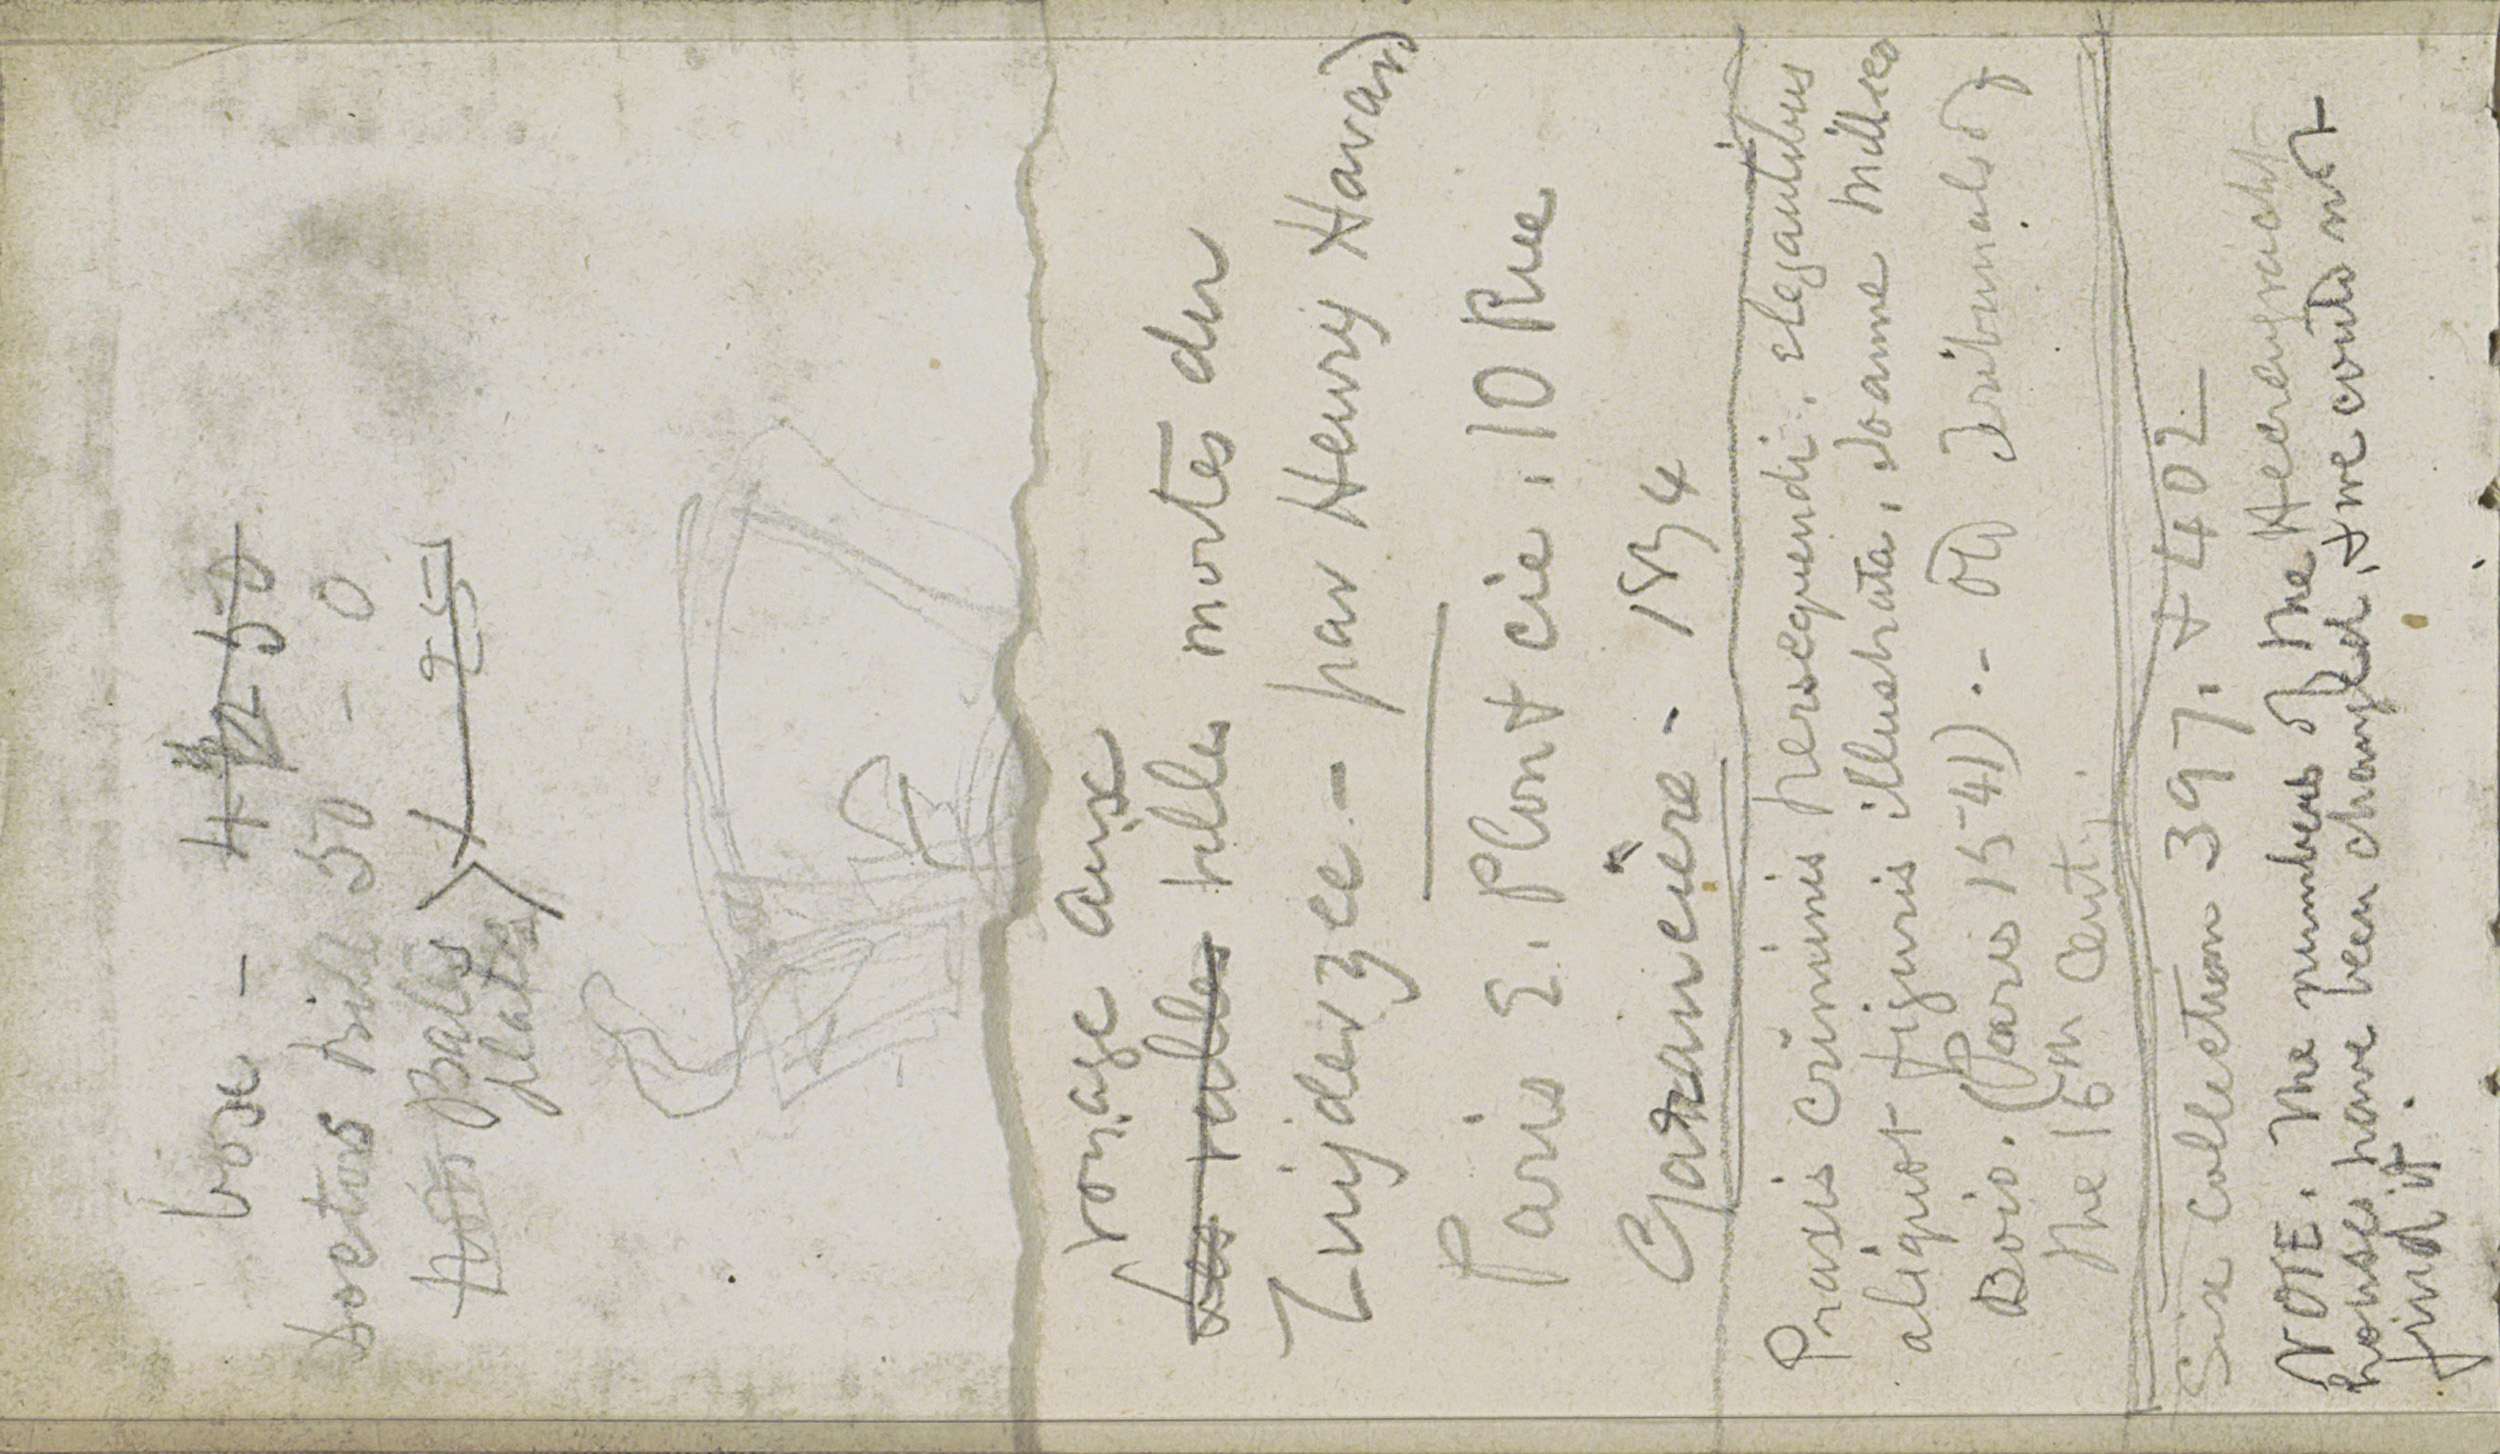 box - 4
Doctors bill 50 - 0
Bales
plates 25
Voyage aux
villes mortes du
Zuijderzee - par Henry Havard
Paris E. Plon & cie. 10 Rue
Garancière - 1874
Praxis criminis persequendi: elegantibus
aliquot figuris illustrata, Joanne Milleo
Boio. (Paris 1541) -- old tribunals of
the 16th cent.
Six collection 397. & 402
NOTE. The numbers of the Heerengracht
houses have been changed, & we could not
find it.